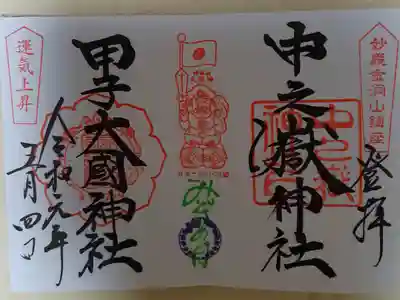 妙義金洞山鎮座
登拝
中之嶽神社
甲子大國神社
令和元年
五月四日
運気上昇